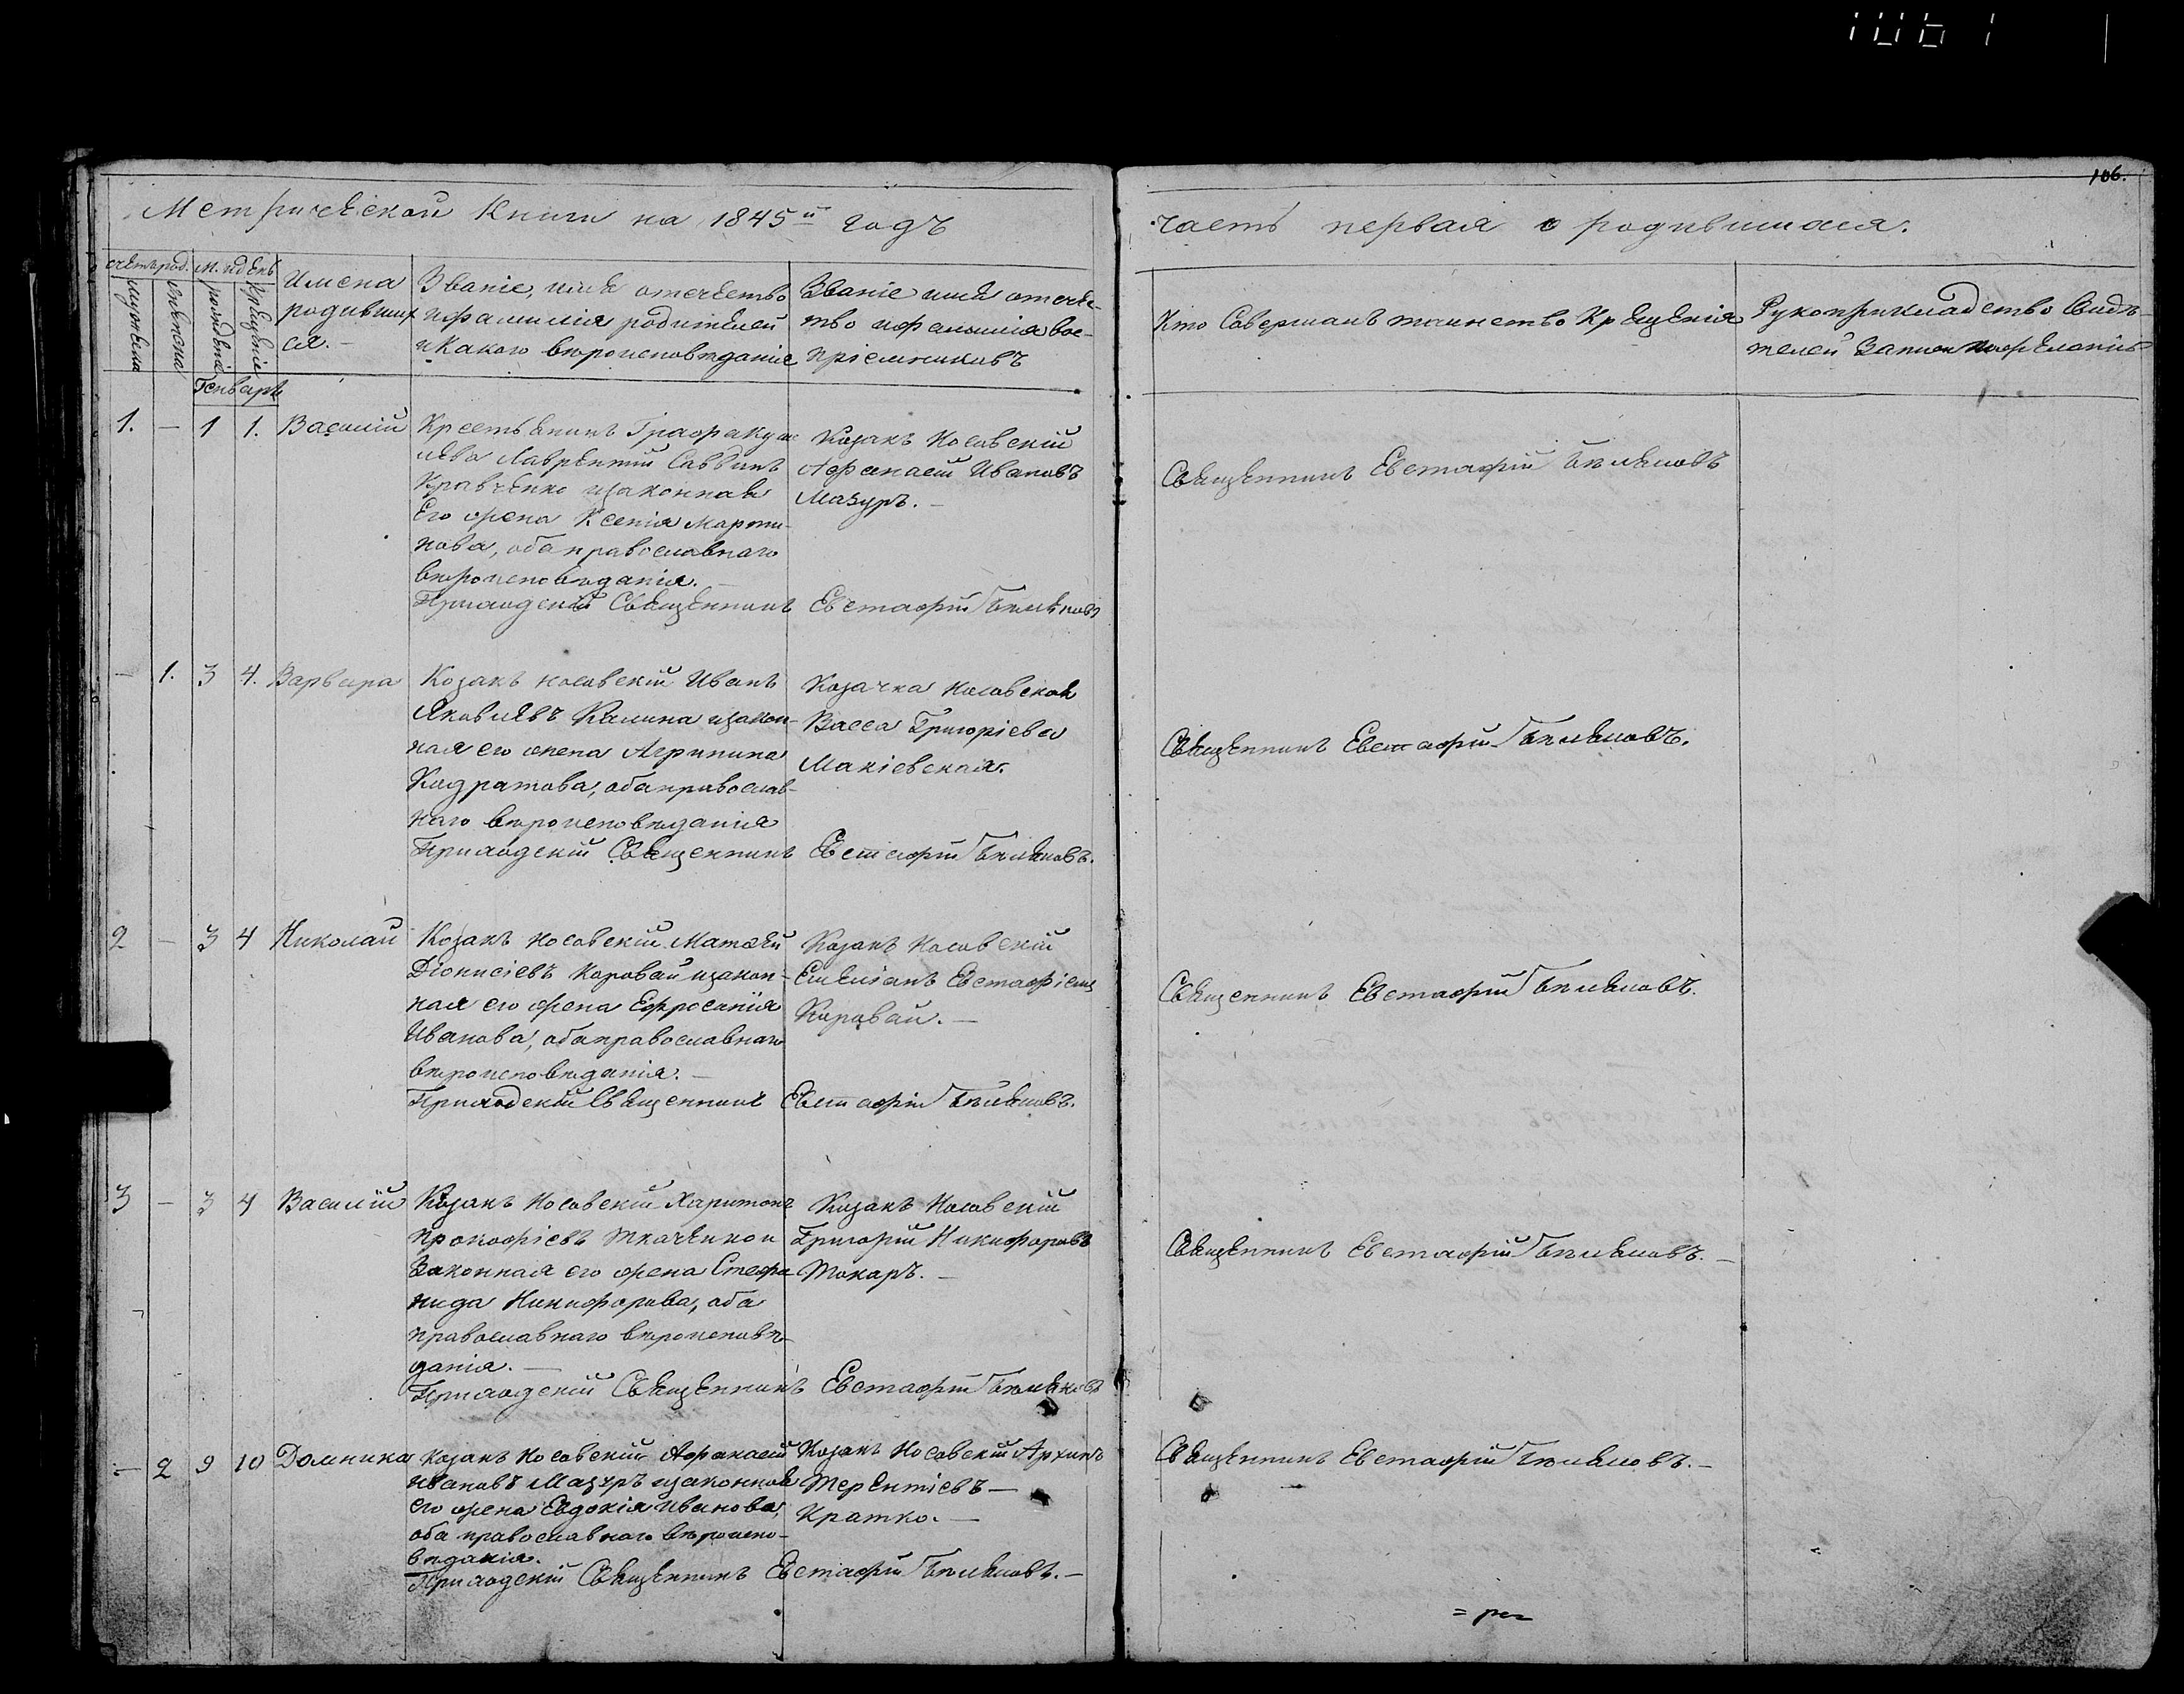 106.
Метрической Книги на 1845й годъ
часть первая о родившихся.
счетъ род.
м. и день
мужеска
женска
рожденіе
Крещеніе
Имена
родивших
ся.-
Званіе, имя отечество
и фамилія родителей
и Какого вероисповеданія
Званіе имя отече-
тво и фамилія вос-
пріемниковъ
Кто Совершалъ таинство Крещенія
Рукоприкладство Свидѣ-
телей
Генваря
1. — 1 1. Василій
Крестьянинъ Графа
Лаврентій Саввинъ
Кравченко и законная
Его жена Ксенія Марти-
нова, оба православнаго
вероисповеданія. —
Приходскій Священникъ Евстафій
Козакъ Носовскій
Афанасій Ивановъ
Мазуръ. —
Священникъ Евстафій
— 1. 3 4. Варвара
Козакъ Носовскій Иванъ
Яковлевъ Калина и закон-
ная его жена Агрипина
Кодратова, оба православ-
наго вероисповеданія
Приходскій Священникъ Евстафій
Козачка Носовская
Васса Григоріева
Макіевская.
Священникъ Евстафій
2 — 3 4 Николай
Козакъ Носовскій Матѳей
Діонисіевъ Коровай и закон-
ная его жена Ефросинія
Иванова, оба православнаго
вероисповеданія. —
Приходскій Священникъ Евстафій
Козакъ Носовскій
Емеліанъ Евстафіевъ
Коровай. —
Священникъ Евстафій
3 — 3 4 Василій
Козакъ Носовскій Харитонъ
Прокофіевъ Ткаченко и
Законная его жена Стефа
нида Никифорова, оба
православнаго вероисповѣ-
данія. —
Приходскій Священникъ Евстафій
Козакъ Носовскій
Григорій Никифоровъ
Токаръ. —
Священникъ Евстафій
— 2 9 10 Домника
Козакъ Носовскій Афанасій
Ивановъ Мазуръ и законная
его жена Евдокія Иванова,
оба православнаго вероиспо-
веданія.
Приходскій Священникъ Евстафій
Козакъ Носовскій Архипъ
Терентіевъ —
Кратко. —
Священникъ Евстафій